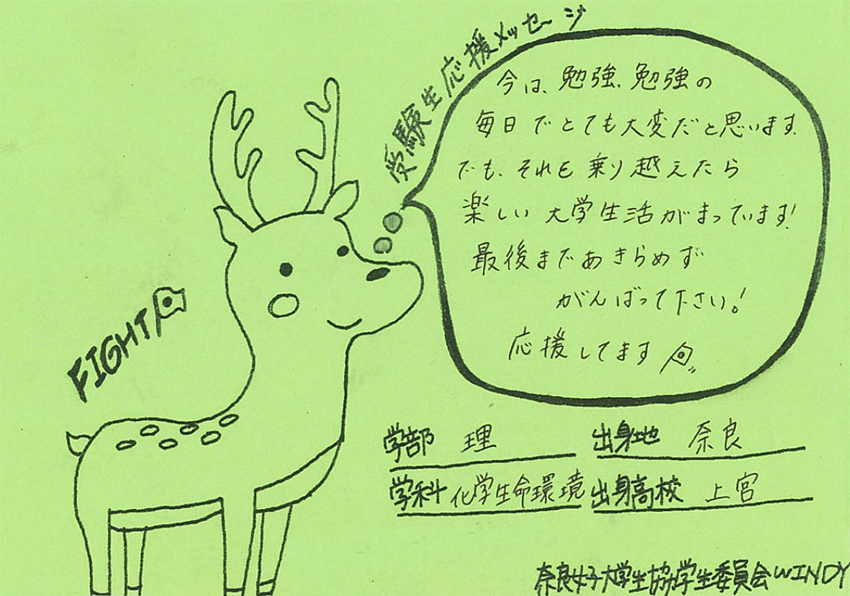 受験生応援メッセージ
今は、勉強、勉強の
毎日でとても大変だと思います。
でも、それを乗り越えたら
楽しい大学生活がまっています!
最後まであきらめず
がんばって下さい!
応援してます
FIGHT
学部 理 出身地 奈良
学科 化学生命環境 出身高校 上宮
奈良女子大学生協学生委員会WINDY